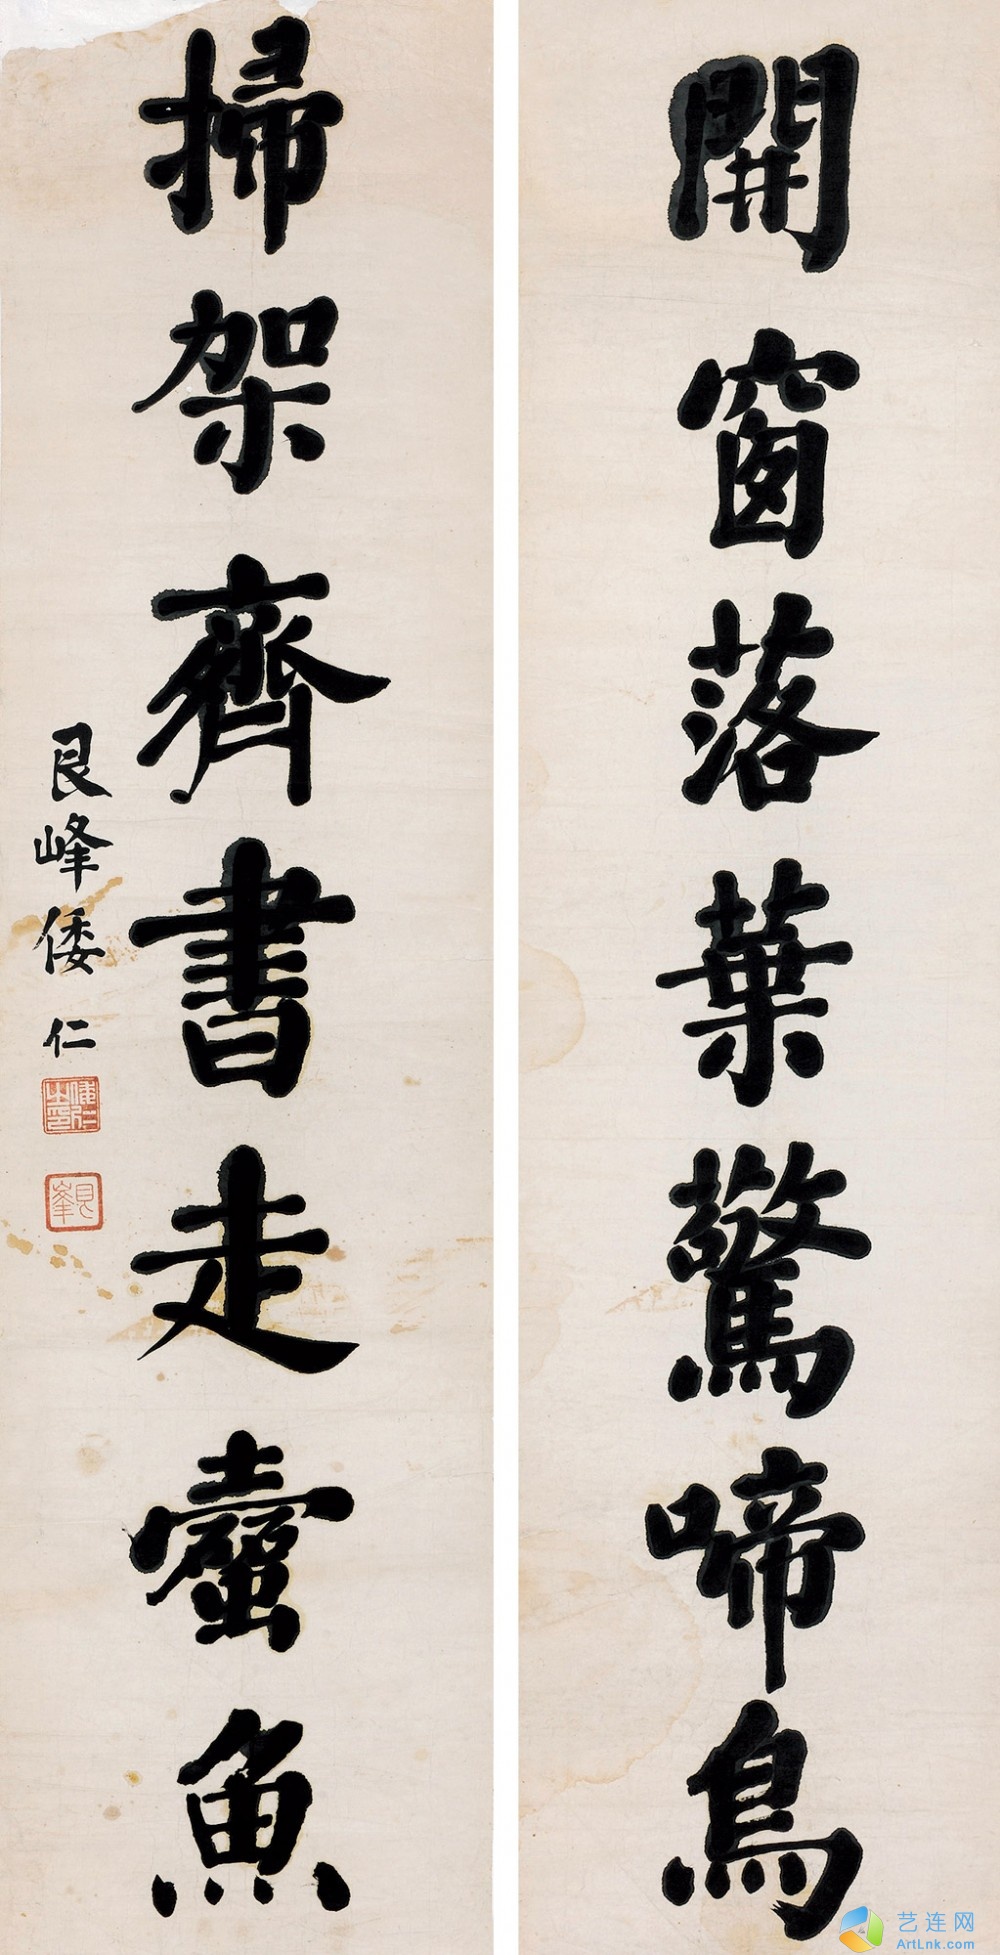 開窗落葉驚啼鳥
掃架齊書走蠹魚
艮峰倭仁
倭仁之印
艮峯
艺连网
ArtLnk.com